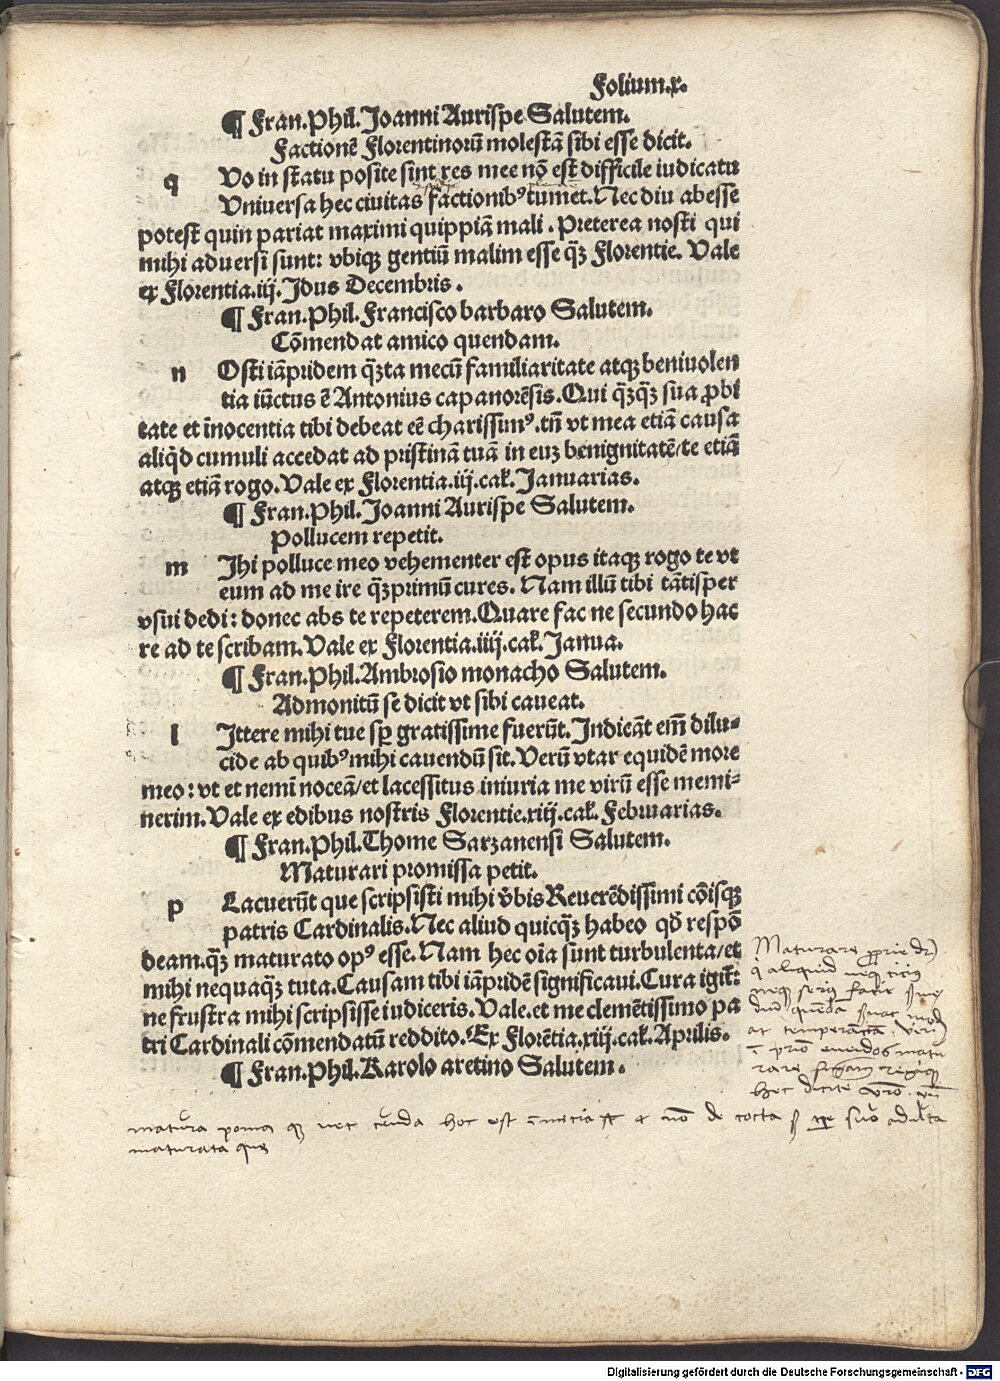 Folium.x.
¶ Fran.Phil.Joanni Aurispe Salutem.
Factionē Florentinorū molestā sibi esse dicit.
q Vo in statu posite sint res mee nō est difficile iudicatu
Vniversa hec ciuitas factionibꝰ tumet. Nec diu abesse
potest quin pariat maximi quippiā mali. Preterea nosti qui
mihi aduersi sunt: vbiqꝫ gentiū malim esse qꝫ̄ Florentie. Vale
ex Florentia.iij.Idus Decembris.
¶ Fran.Phil.Francisco barbaro Salutem.
Cōmendat amico quendam.
n Osti iāpridem qꝫ̄ta mecū familiaritate atqꝫ beniuolen
tia iūctus ē Antonius capanorēsis. Qui qꝫ̄qꝫ̄ sua ꝓbi
tate et īnocentia tibi debeat eē charissimꝰ.tn̄ vt mea etiā causa
aliqd̄ cumuli accedat ad pristinā tuā in euꝫ benignitatē/te etiā
atqꝫ etiā rogo. Vale ex Florentia.iij.cal.Januarias.
¶ Fran.Phil.Joanni Aurispe Salutem.
Pollucem repetit.
m Ihi polluce meo vehementer est opus itaqꝫ rogo te vt
eum ad me ire qꝫ̄primū cures. Nam illū tibi tātisper
vsui dedi: donec abs te repeterem. Quare fac ne secundo hac
re ad te scribam. Vale ex Florentia.iiij.cal.Janua.
¶ Fran.Phil.Ambrosio monacho Salutem.
Admonitū se dicit vt sibi caueat.
l Ittere mihi tue sp̄ gratissime fuerūt. Indicāt em̄ dilu-
cide ab quibꝰ mihi cauendū sit. Verū vtar equidē more
meo: vt et nemī noceā/et lacessitus iniuria me virū esse memi-
nerim. Vale ex edibus nostris Florentie.xiij.cal.Februarias.
¶ Fran.Phil.Thome Sarzanensi Salutem.
Maturari promissa petit.
p Lacuerūt que scripsisti mihi v̄bis Reuerēdissimi cōisqꝫ
patris Cardinalis. Nec aliud quicqꝫ̄ habeo qd̄ respō
deam.qꝫ̄ maturato opꝰ esse. Nam hec oīa sunt turbulenta/et
mihi nequaqꝫ̄ tuta. Causam tibi iāpridē significaui. Cura igit̄:
ne frustra mihi scripsisse iudiceris. Vale.et me clemētissimo pa
tri Cardinali cōmendatū reddito. Ex Florētia.xiij.cal.Aprilis.
¶ Fran.Phil.Karolo aretino Salutem.
Maturare
aliquid
hoc
matura poma hoc est
maturata que
Digitalisierung gefördert durch die Deutsche Forschungsgemeinschaft - DFG